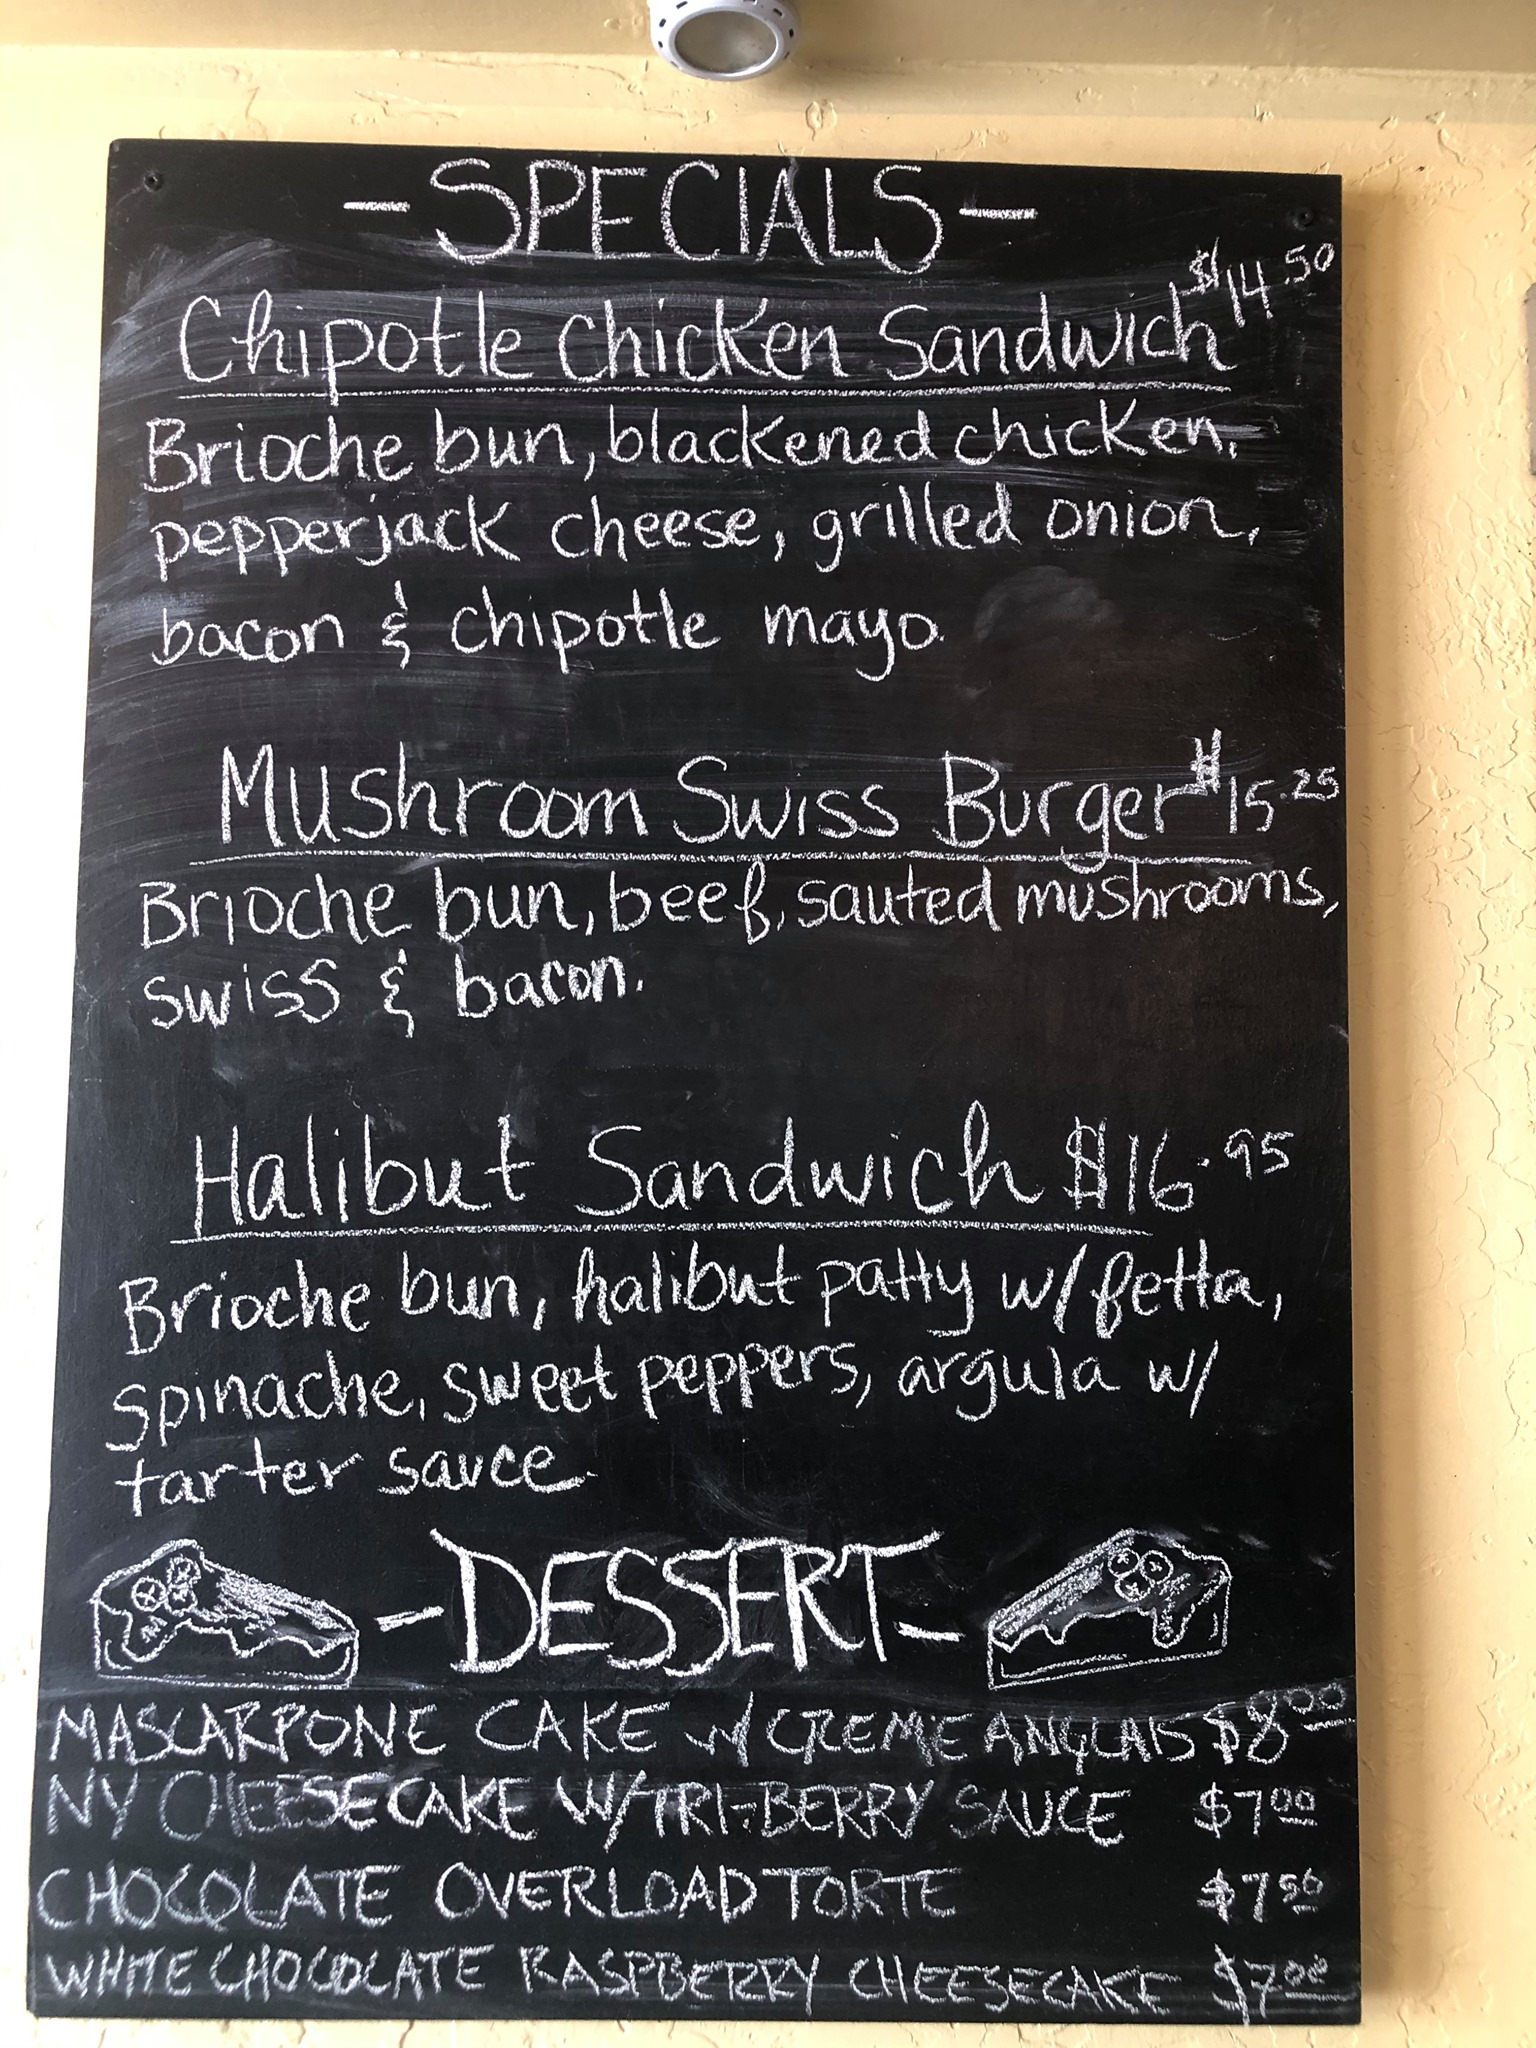 -SPECIALS-
Chipotle Chicken Sandwich $14.50
Brioche bun, blackened chicken,
pepperjack cheese, grilled onion,
bacon & chipotle mayo.
Mushroom Swiss Burger $15.25
Brioche bun, beef, sauted mushrooms,
swiss & bacon.
Halibut Sandwich $16.95
Brioche bun, halibut patty w/ fetta,
spinache, sweet peppers, argula w/
tarter sauce.
-DESSERT-
MASCARPONE CAKE w/ CREME ANGLAIS $8.00
NY CHEESECAKE W/ TRI-BERRY SAUCE $7.00
CHOCOLATE OVERLOAD TORTE $7.50
WHITE CHOCOLATE RASPBERRY CHEESECAKE $7.00